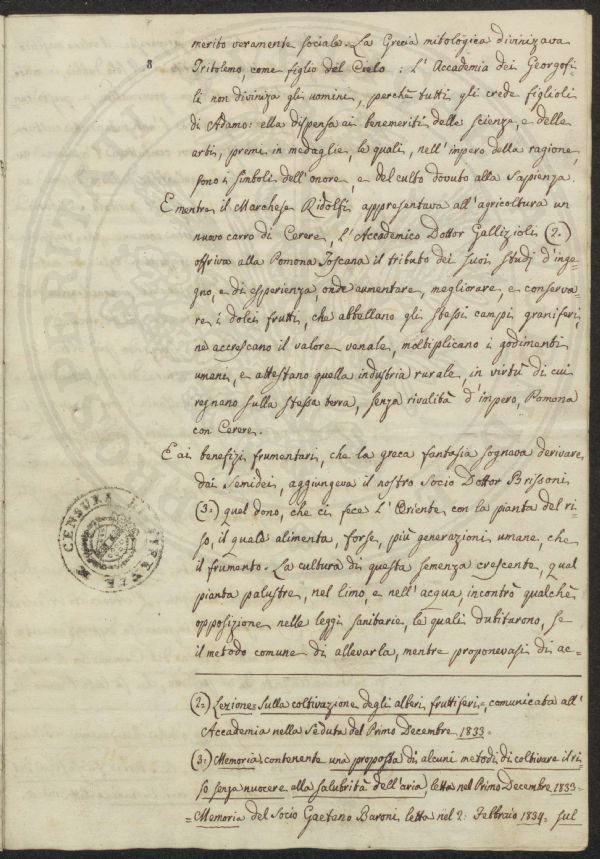 8
merito veramente sociale. La Grecia mitologica divinizava
Tritolemo, come figlio del Cielo : L' Accademia dei Georgofi-
li non diviniza gli uomini, perchè tutti gli crede figlioli
di Adamo: ella dispensa ai benemeriti delle scienze, e delle
arti, premi in medaglie, le quali, nell'impero della ragione,
sono i simboli dell'onore, e del culto dovuto alla Sapienza.
E mentre il Marchese Ridolfi appresentava all'agricoltura un
nuovo carro di Cerere, L'Accademico Dottor Gallizioli (2.)
offriva alla Pomona Toscana il tributo dei suoi studj d'inge-
gno, e di esperienza, onde aumentare, megliorare, e conserva-
re i dolci frutti, che abbellano gli stessi campi graniferi,
ne accrescano il valore venale, moltiplicano i godimenti
umani, e attestano quella industria rurale, in virtù di cui
regnano sulla stessa terra, senza rivalità d'impero, Pomona
con Cerere.
E ai benefizi frumentari, che la greca fantasia sognava derivare
dai Semidei, aggiungeva il nostro Socio Dottor Brissoni
(3.) quel dono, che ci fece L'Oriente con la pianta del ri-
so, il quale alimenta, forse, più generazioni umane, che
il frumento. La cultura di questa semenza crescente, qual
pianta palustre, nel limo, e nell'acqua, incontrò qualche
opposizione nelle leggi sanitarie, le quali dubitarono, se
il metodo comune di allevarla, mentre proponevasi di ac-
CENSURA
(2.) Lezione = Sulla coltivazione degli alberi fruttiferi =, comunicata all'
Accademia nella Seduta del Primo Decembre 1833.
(3.) Memoria contenente una proposta di alcuni metodi di coltivare il ri-
so senza nuocere alla salubrità dell'aria, letta nel Primo Decembre 1833=
=Memoria del Socio Gaetano Baroni letta nel 2: Febbraio 1834= sul